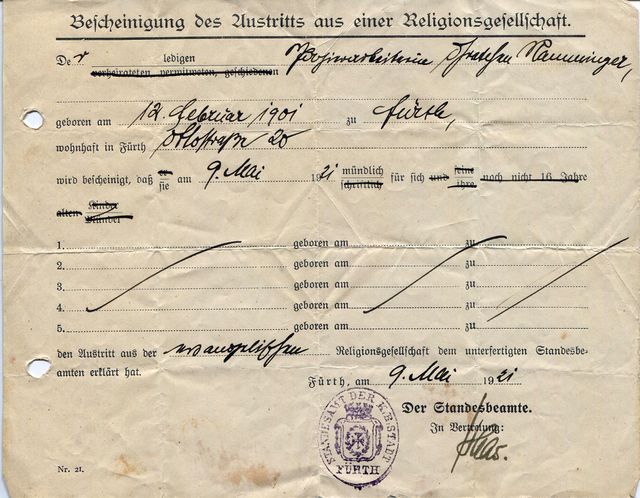 Bescheinigung des Austritts aus einer Religionsgesellschaft.
Der ledigen
verheirateten verwitweten, geschiedenen
Gretchen Namminger,
geboren am 12. Februar 1901 zu Fürth,
wohnhaft in Fürth Ottostraße 20
wird bescheinigt, daß er sie am 9. Mai 1921 mündlich schriftlich für sich und seine ihre noch nicht 16 Jahre
alten Kinder Mündel
1. geboren am zu
2. geboren am zu
3. geboren am zu
4. geboren am zu
5. geboren am zu
den Austritt aus der evangelischen Religionsgesellschaft dem unterfertigten Standesbe-
amten erklärt hat.
Fürth, am 9. Mai 1921
Der Standesbeamte.
In Vertretung:
STANDESAMT DER K.B. STADT
FÜRTH
Nr. 21.